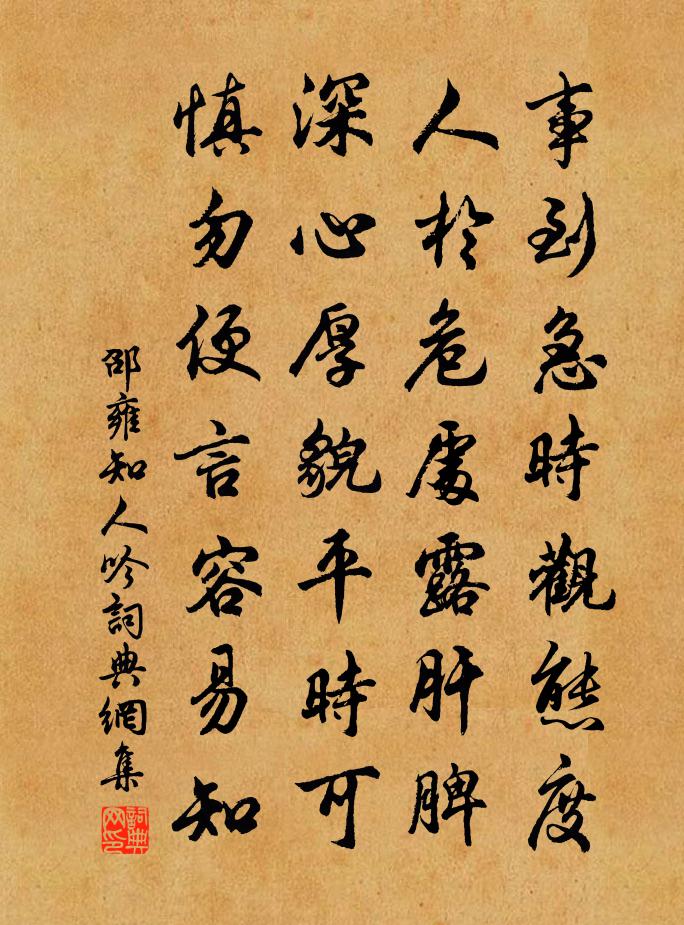 事到急時觀態度
人於危處露肝脾
深心厚貌平時可
慎勿便言容易知
邵雍知人吟詞典網集
詞典网印